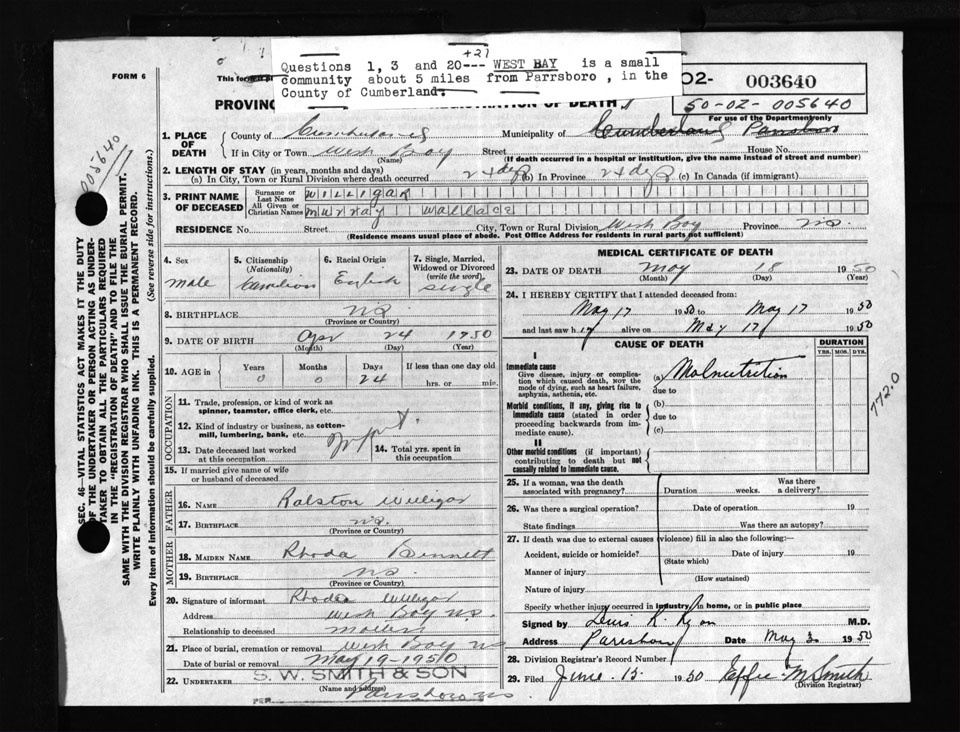 +21
Questions 1, 3 and 20--- WEST BAY is a small
community about 5 miles from Parrsboro, in the
County of Cumberland.
FORM 6
This
02-
003640
50-02-005640
For use of the Department only
PROVINC
REGISTRATION OF DEATH
1. PLACE OF DEATH
County of Cumberland Municipality of Cumberland Parrsboro
If in City or Town West Bay Street House No.
(Name) (If death occurred in a hospital or institution, give the name instead of street and number)
2. LENGTH OF STAY (in years, months and days)
(a) In City, Town or Rural Division where death occurred 24 days (b) In Province 24 days (c) In Canada (if immigrant)
3. PRINT NAME OF DECEASED
Surname or Last Name Willigar
All Given or Christian Names Murray Wallace
RESIDENCE No. Street City, Town or Rural Division West Bay Province N.S.
(Residence means usual place of abode. Post Office Address for residents in rural parts not sufficient)
4. Sex
male
5. Citizenship (Nationality)
Canadian
6. Racial Origin
English
7. Single, Married, Widowed or Divorced (write the word)
single
8. BIRTHPLACE N.S.
(Province or Country)
9. DATE OF BIRTH Apr 24 1950
(Month) (Day) (Year)
10. AGE in Years Months Days If less than one day old
0 0 24 hrs. or min.
OCCUPATION
11. Trade, profession, or kind of work as spinner, teamster, office clerk, etc.
12. Kind of industry or business, as cotton-mill, lumbering, bank, etc. Infant
13. Date deceased last worked at this occupation 14. Total yrs. spent in this occupation
15. If married give name of wife or husband of deceased
FATHER
16. NAME Ralston Willigar
17. BIRTHPLACE N.S.
(Province or Country)
MOTHER
18. MAIDEN NAME Rhoda Bennett
19. BIRTHPLACE N.S.
(Province or Country)
20. Signature of informant Rhoda Willigar
Address West Bay N.S.
Relationship to deceased mother
21. Place of burial, cremation or removal West Bay N.S.
Date of burial or removal May 19-1950
22. UNDERTAKER S. W. SMITH & SON
(Name and address) Parrsboro N.S.
PER
MEDICAL CERTIFICATE OF DEATH
23. DATE OF DEATH May 18 1950
(Month) (Day)
24. I HEREBY CERTIFY that I attended deceased from:
May 17 1950 to May 17 1950
and last saw h alive on May 17 1950
CAUSE OF DEATH
DURATION
YRS. MOS. DYS.
I
Immediate cause
Give disease, injury or complication which caused death, NOT the mode of dying, such as heart failure, asphyxia, asthenia, etc.
(a) Malnutrition
due to
Morbid conditions, if any, giving rise to immediate cause (stated in order proceeding backwards from immediate cause).
(b)
due to
(c)
II
Other morbid conditions (if important) contributing to death but not causally related to immediate cause.
772.0
25. If a woman, was the death associated with pregnancy? Duration weeks. Was there a delivery?
26. Was there a surgical operation? Date of operation 19
State findings Was there an autopsy?
27. If death was due to external causes (violence) fill in also the following:—
Accident, suicide or homicide? Date of injury 19
(State which)
Manner of injury
(How sustained)
Nature of injury
Specify whether injury occurred in industry, in home, or in public place
Signed by K. Ryan M.D.
Address Parrsboro Date May 1950
28. Division Registrar's Record Number
29. Filed June 15. 1950 Effie M Smith
(Division Registrar)
005640
SEC. 46—VITAL STATISTICS ACT MAKES IT THE DUTY
OF THE UNDERTAKER OR PERSON ACTING AS UNDER-
TAKER TO OBTAIN ALL THE PARTICULARS REQUIRED
IN THE "REGISTRATION OF DEATH" AND TO FILE THE
SAME WITH THE DIVISION REGISTRAR WHO SHALL ISSUE THE BURIAL PERMIT.
WRITE PLAINLY WITH UNFADING INK. THIS IS A PERMANENT RECORD.
Every item of information should be carefully supplied. (See reverse side for instructions.)